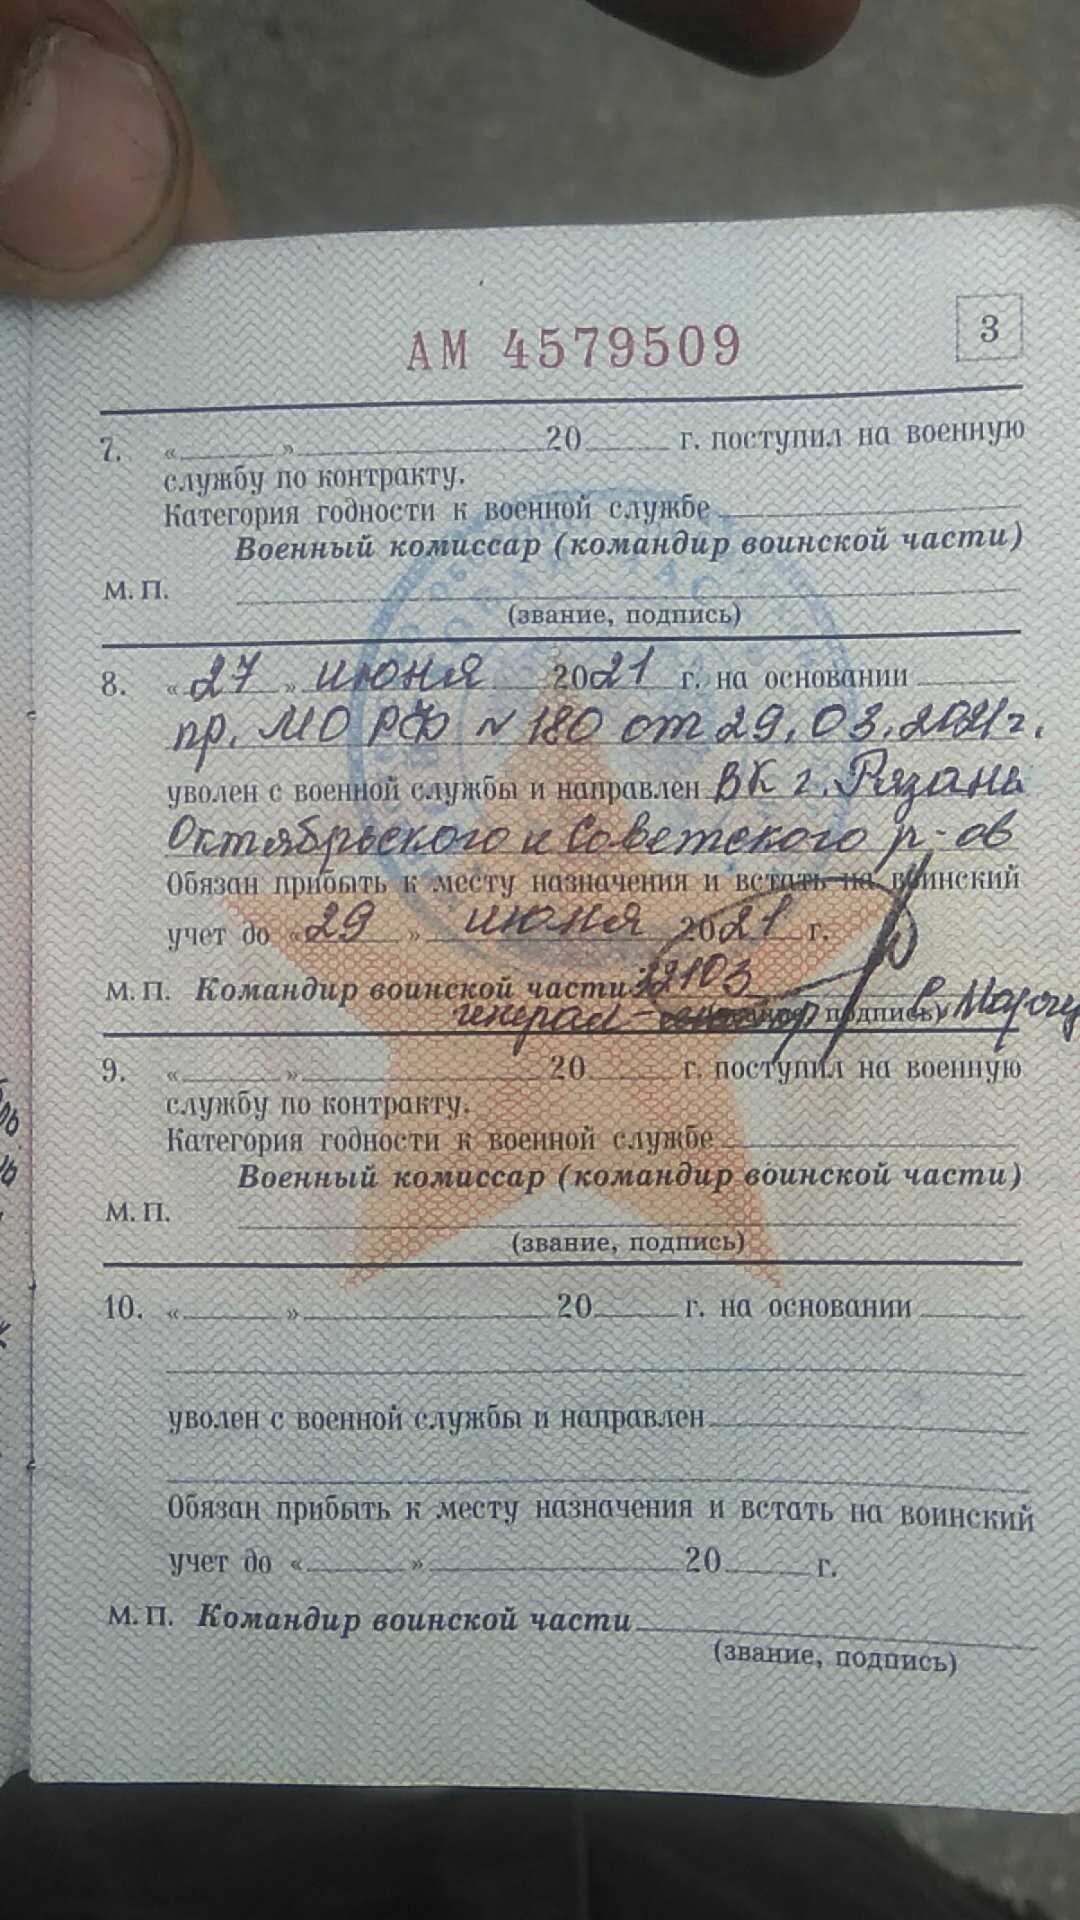 АМ 4579509
3
7. «____» ____ 20____ г. поступил на военную
службу по контракту.
Категория годности к военной службе
Военный комиссар (командир воинской части)
М. П.
(звание, подпись)
8. «27» июня 2021 г. на основании
пр. МО РФ № 180 от 29.03.2021г.
уволен с военной службы и направлен ВК г. Рязани
Октябрьского и Советского р-ов
Обязан прибыть к месту назначения и встать на воинский
учет до «29» июня 2021 г.
М. П. Командир воинской части
генерал- подпись)
9. «____» ____ 20____ г. поступил на военную
службу по контракту.
Категория годности к военной службе
Военный комиссар (командир воинской части)
М. П.
(звание, подпись)
10. «____» ____ 20____ г. на основании
уволен с военной службы и направлен
Обязан прибыть к месту назначения и встать на воинский
учет до «____» ____ 20____ г.
М. П. Командир воинской части
(звание, подпись)